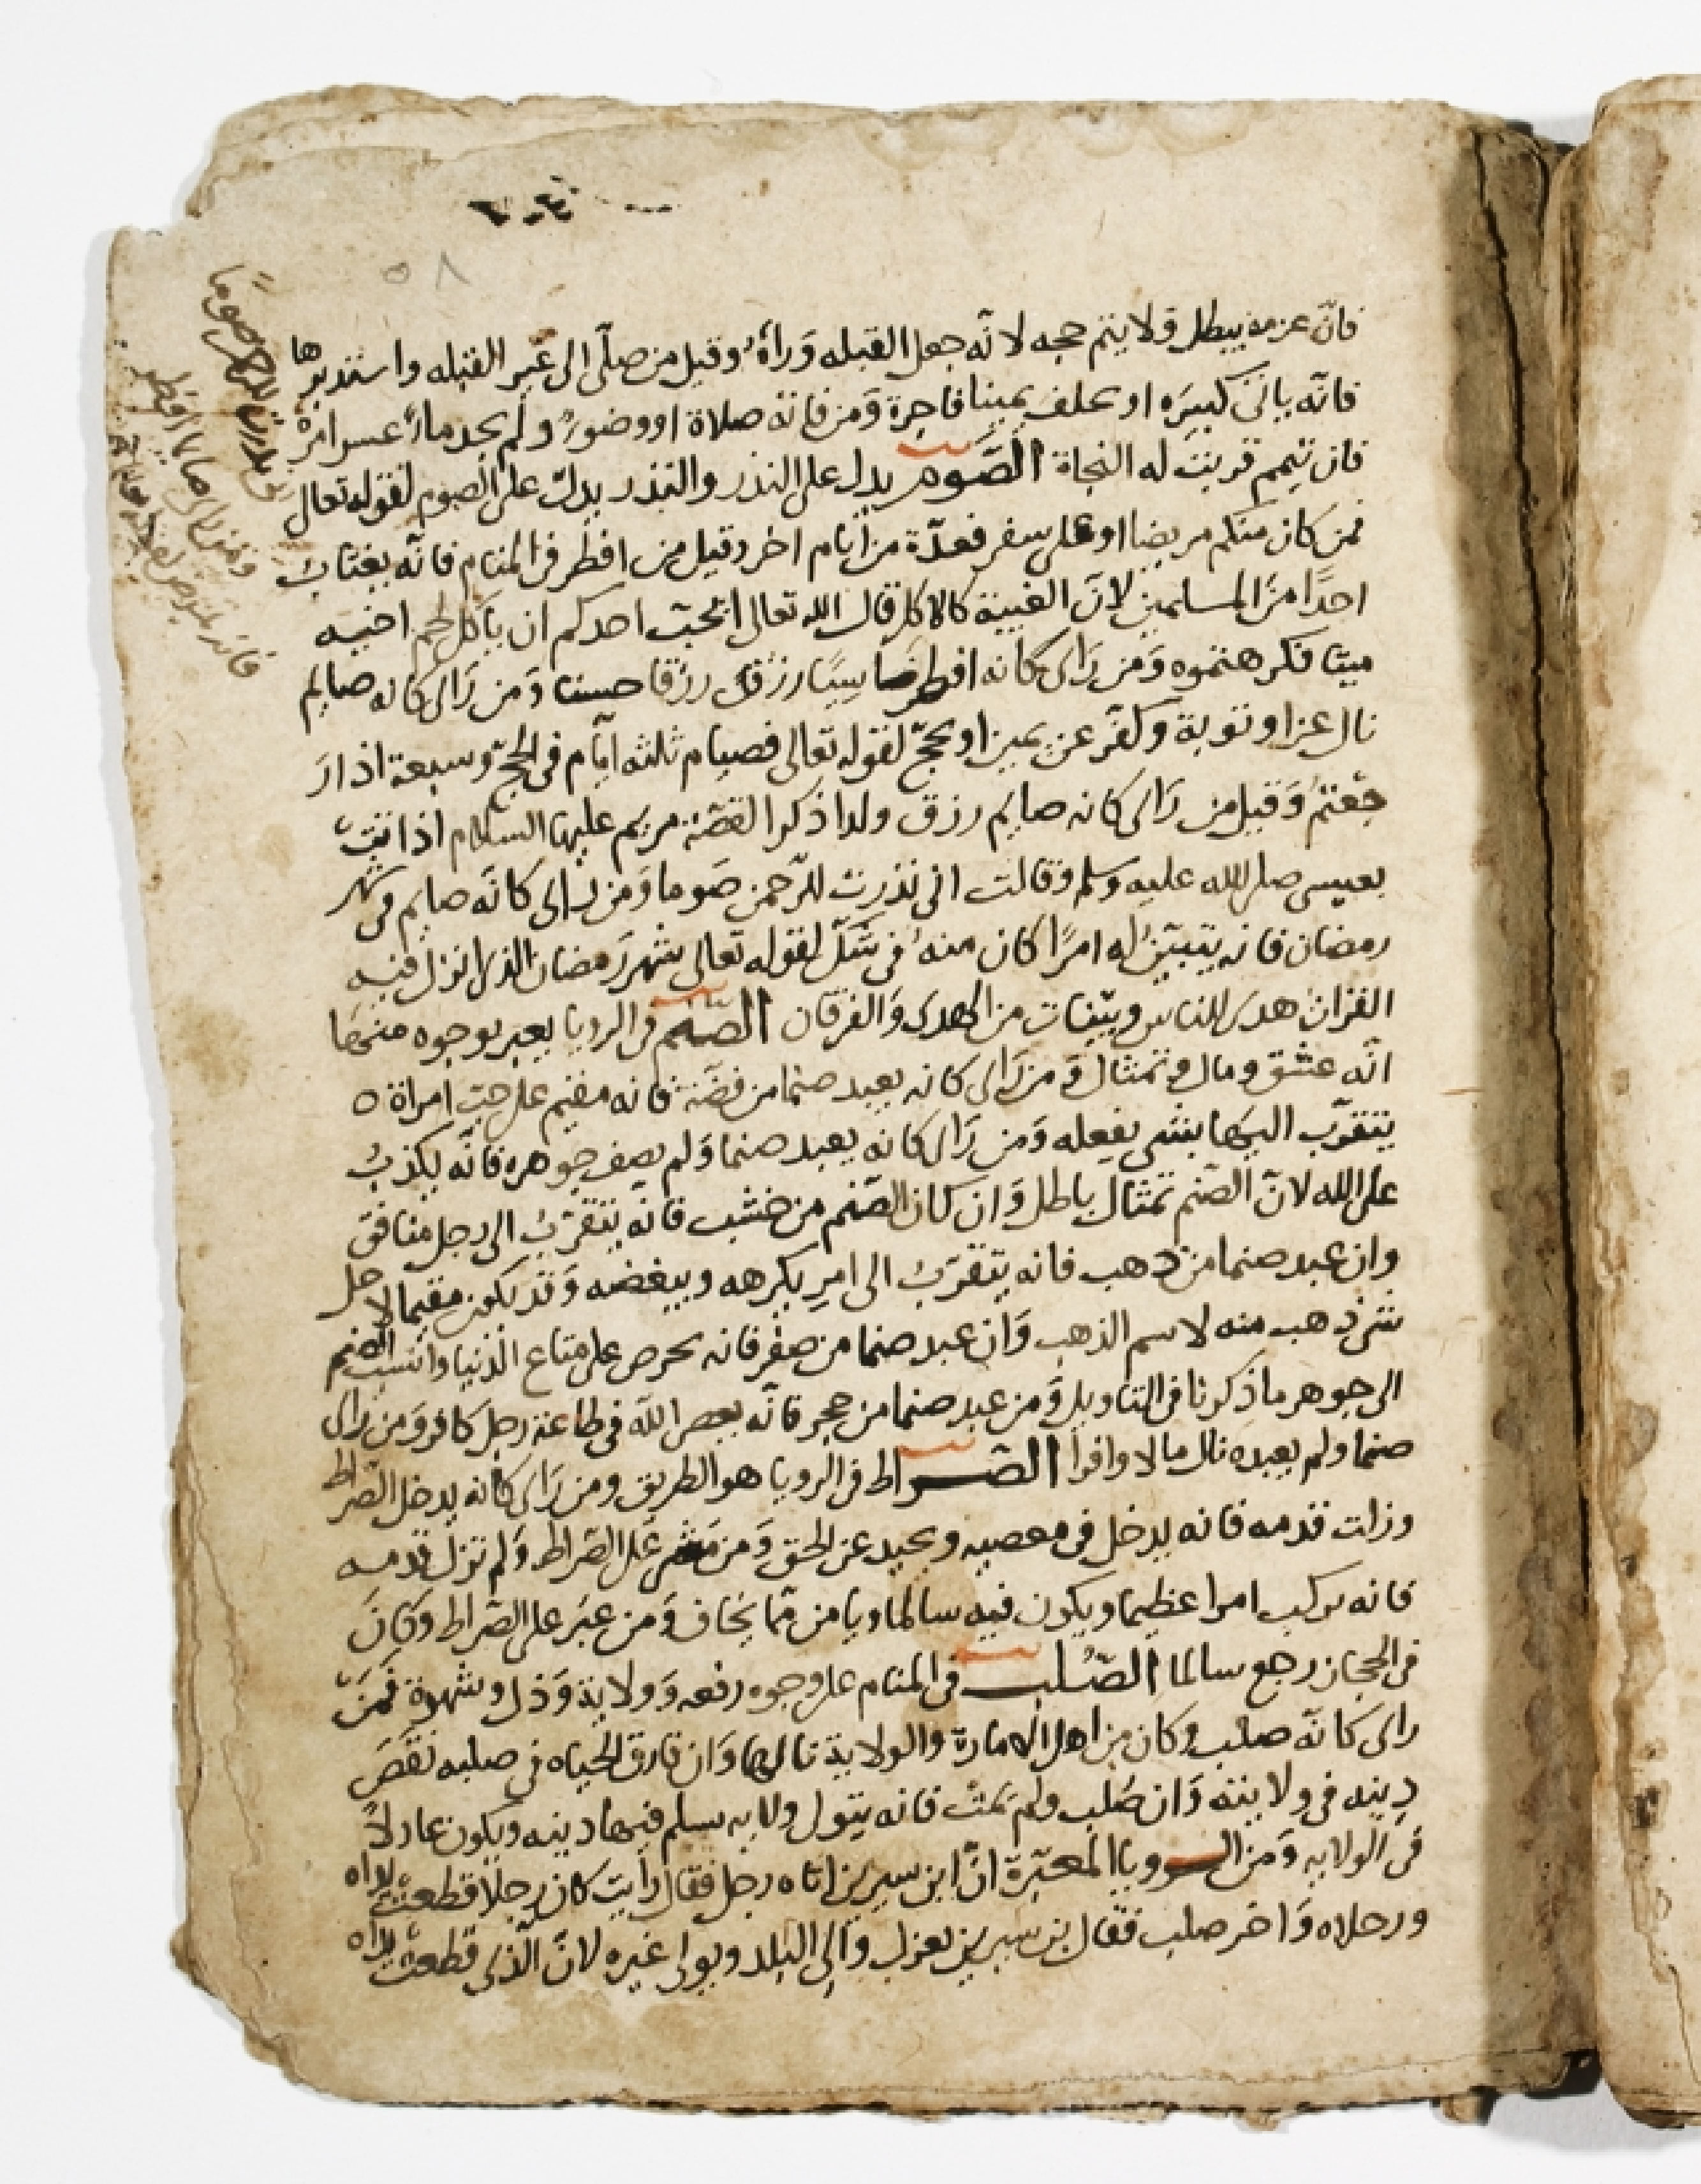 ٥٨
فانّ عزمه يبطل ولا يتم حجه لانه جعل القبله وَرآهُ وقيل من صلّى الى غير القبله واستدبرها
فانّه ياتى كبيرَه او يحلف يمينا فاجرة وَمن فاته صلاة او وضوءٌ ولم يجد ماءً عسر امرُهْ
فان تيمم قربت له النجاة الصَّوم يدل على النذر والنذر يدلّ على الصوم لقوله تعالى
فمن كان منكم مريضا او على سفر فعدّة من ايام اخر وقيل من افطر فى المنام فانّه يغتابُ
احدًا منَ المسلمين لانّ الغيبة كالاكل قال الله تعالى ايحبّ احدكم ان ياكل لحم اخيه
ميتا فكرهتموه وَمن رَاى كانه افطر ناسيًا رزق رزقا حسنا وَمن رَاى كانه صايم
نال عزا وتوبة وكفّر عن يمين او يحجّ لقوله تعالى فصيام ثلثه ايّام فى الحجّ وسبعة اذا رَ
جعتمُ وَقيل من رَاى كانه صايم رزق ولدا ذكرا لقصّة مريم عليها السّلام اذ اتتْ
بعيسى صلى الله عليه وسلم وقالت انى نذرت للرّحمن صَوما وَمن راى كانّه صايم فى شهر
رمضان فانه يتبيّنُ له امرًا كان منهُ فى شكّ لقوله تعالى شهر رَمضان الذى انزل فيه
القرانُ هدى للناس وبيّنات من الهدى وَالفرقان الصّنم فى الرويا يعبر بوجوه منها
انّه عشق ومال وتمثال وَمن رَاى كانه يعبد صنما من فضّة فانه مقيم على حبّ امراة
يتقرّب اليها بشى يفعله وَمن رَاى كانّه يعبد صنما وَلم يصف جوهره فانّه يكذبُ
على الله لانّ الصّنم تمثال باطل وَان كان الصّنم من خشب فانّه يتقرّبُ الى رجل منافق
وان عبد صنما من ذهب فانه يتقرّبُ الى امرٍ يكرهه ويبغضه وَقد يكون مقيما لاجل
شى ذهب منه لاسم الذهب وَان عبد صنما من صفر فانه يحرص على متاع الدّنيا وانسب الصّنم
الى جوهر ما ذكرنا فى التاويل وَمن عبد صنما من حجر فانّه يعصى الله فى طاعة رجل كافر وَمن راى
صنما ولم يعبده نال مالا وافرا الصّراط فى الرويا هو الطريق ومن رَاى كانه يدخل الصّراط
وزلت قدمه فانه يدخل فى معصيه ويحيد عن الحق وَمن مَشى عَلى الصّراط وَلم تزل قدمه
فانه يركب امرا عظيما ويكون فيه سالما ويامن ممّا يخاف وَمن عبَر على الصّراط وكَانَ
فى الحجاز رجع سالما الصّلب فى المنام على وجوه رفعه وَولاية وَذل وشهرة فمَنْ
راى كانّه صلب وكان من اهل الامارة والولاية نالها وَان فارق الحياه فى صلبه نقصَ
دينه فى ولايته وَان صُلب ولم يمتْ فانه يتولى ولايه يسلم فيها دينه ويكون عادلًا
فى الولايه وَمن الرويا المعبّرة انّ ابن سيرين اتاه رجل فقال رَأيت كان رجلا قطعتْ يداه
ورجلاه وَاخر صلب فقال بن سيرين يعزل وَالى البلد ويولى غيره لانّ الّذى قطعتْ يداه
نذرت للرحمن صومًا